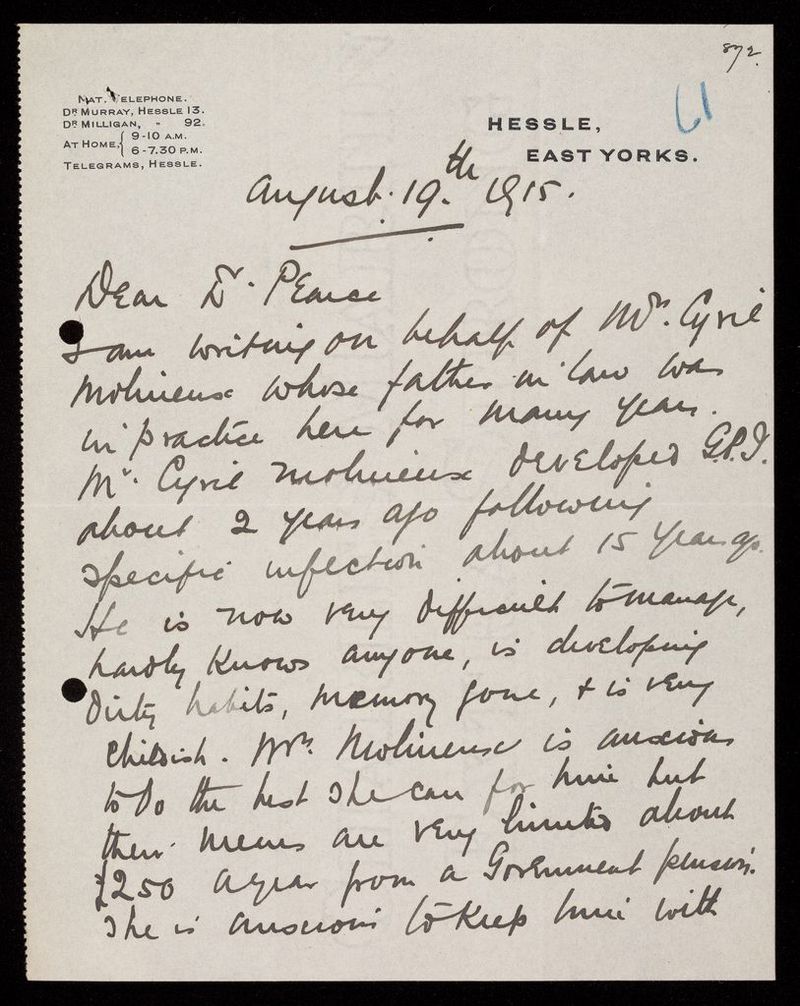 872.
61
NAT. TELEPHONE.
DR MURRAY, HESSLE 13.
DR MILLIGAN, " 92.
AT HOME, { 9-10 A.M.
6-7.30 P.M.
TELEGRAMS, HESSLE.
HESSLE,
EAST YORKS.
August. 19.th 1915.
Dear Dr. Pearce
I am writing on behalf of Mrs. Cyril
Molineux whose father in law was
in practice here for many years.
Mr. Cyril Molineux developed G.P.I.
about 2 years ago following
specific infection about 15 years ago.
He is now very difficult to manage,
hardly knows anyone, is developing
dirty habits, memory gone, & is very
childish. Mrs. Molineux is anxious
to do the best she can for him but
their means are very limited about
£250 a year from a Government pension.
She is anxious to keep him with